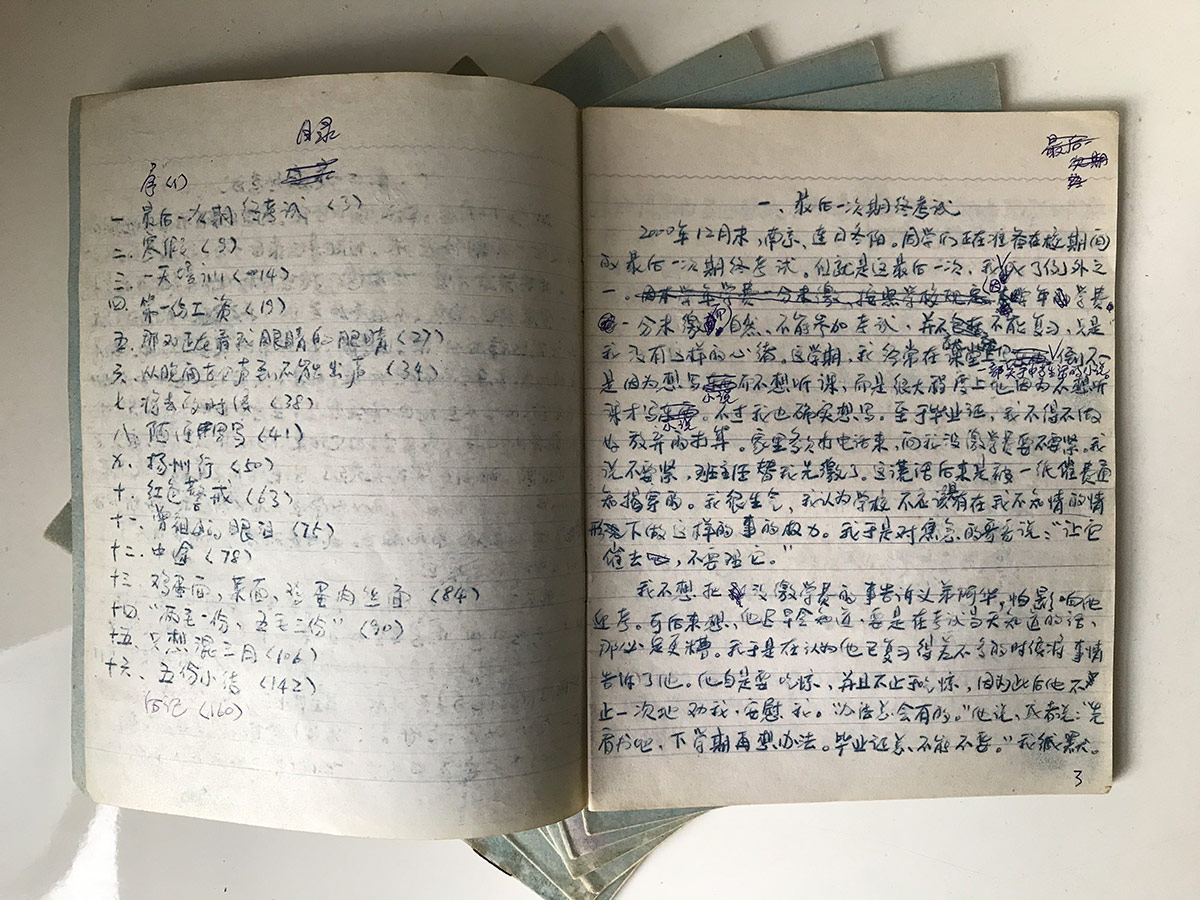 目录
序（1）
一、最后一次期终考试（3）
二、寒假（9）
三、一天培训（14）
四、第一份工资（19）
五、那双正在看我眼睛的眼睛（27）
六、从晚间有声到不能出声（34）
七、将去的时候（38）
八、陋住（41）
九、扬州行（50）
十、红色警戒（63）
十一、曾祖的眼泪（75）
十二、中途（78）
十三、鸡蛋面，菜面，鸡蛋肉丝面（84）
十四、“两毛一份、五毛三份”（90）
十五、只想混三月（106）
十六、五份小结（142）
后记（160）
最后一次期终
一、最后一次期终考试
2000年12月末，南京，连日冬阳。同学们正在准备在校期间
的最后一次期终考试。但就是这最后一次，我成了例外之
一。因本学年学费一分未缴，按照学校规定，学年的学费
一分未缴，自然、不能参加考试，并不包括不能复习，只是
我没有这样的心绪。这学期，我经常在课堂上
是因为想写小说而不想听课，而是很大程度上也因为不想听
课才写小说。不过我也确实想写。至于毕业证，我不得不做
好放弃的打算。家里多次打电话来，问我没缴学费要不要紧。我
说不要紧，班主任替我先缴了。这谎话后来是被一纸催费通
知揭穿的。我很生气，我认为学校不应该有在我不知情的情
形下做这样的事的权力。我于是对焦急的哥哥说：“让它
催去，不要理它。”
我不想把没缴学费的事告诉义弟阿华，怕影响他
迎考。可后来想，他迟早会知道，要是在考试当天知道的话，
那必是更糟。我于是在认为他已复习得差不多的时候将事情
告诉了他。他自是要吃惊，并且不止于吃惊，因为此后他不
止一次地劝我，安慰我。“办法总会有的。”他说，或者说：“先
看书吧，下学期再想办法。毕业证总不能不要。”我缄默。
3